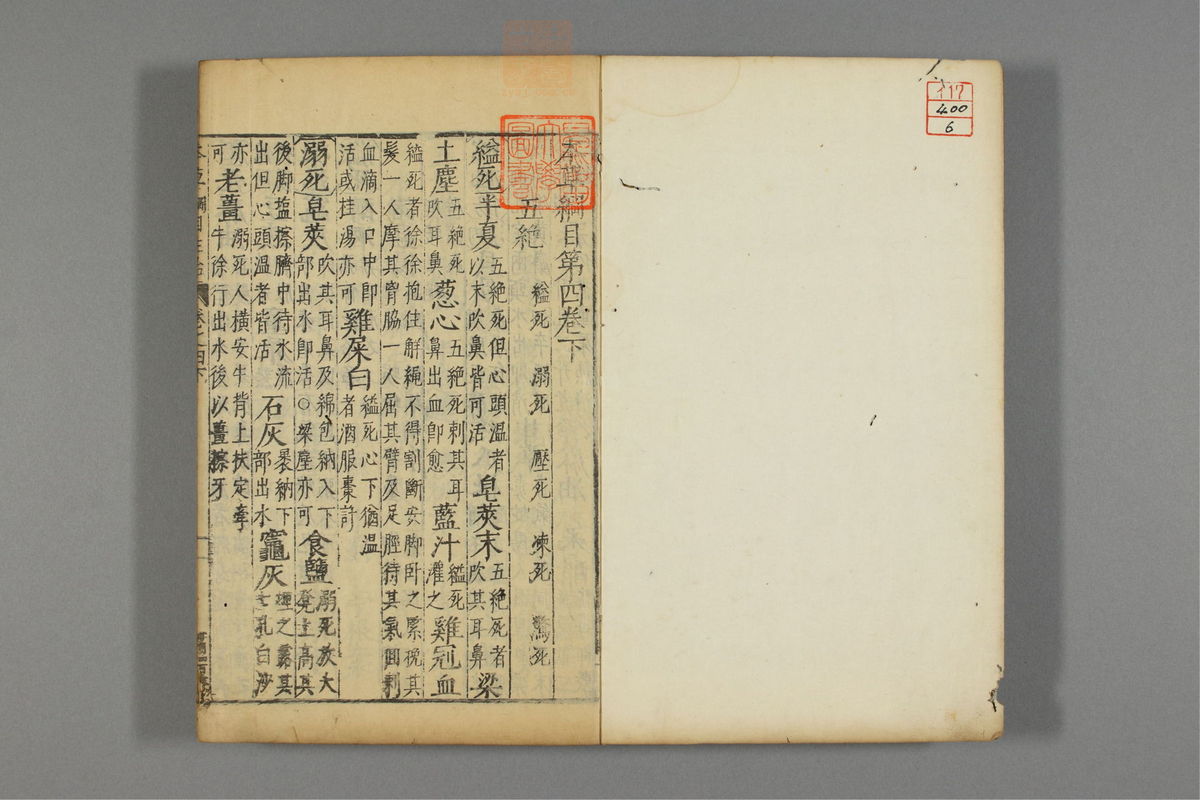 イ17
400
6
本草綱目第四卷下
五絶 縊死 溺死 壓死 凍死 驚死
縊死半夏五絶死但心頭温者以末吹鼻皆可活皂莢末五絶死者吹其耳鼻梁
土塵五絶死吹耳鼻葱心五絶死刺其耳鼻出血卽愈藍汁縊死灌之雞冠血
縊死者徐徐抱住解繩不得割斷安脚卧之緊挽其
髮一人摩其胷脇一人屈其臂及足脛待其氣回刺
血滴入口中卽活或挂湯亦可雞屎白縊死心下猶温者酒服棗許
溺死皂莢吹其耳鼻及綿包納入下部出水卽活○梁塵亦可食鹽溺死放大凳上高其
後脚塩擦臍中待水流出但心頭温者皆活石灰裹納下部出水竈灰埋之露其七孔白沙
亦可老薑溺死人横安牛背上扶定牽牛徐行出水後以薑擦牙
本草綱目主治 卷之四下